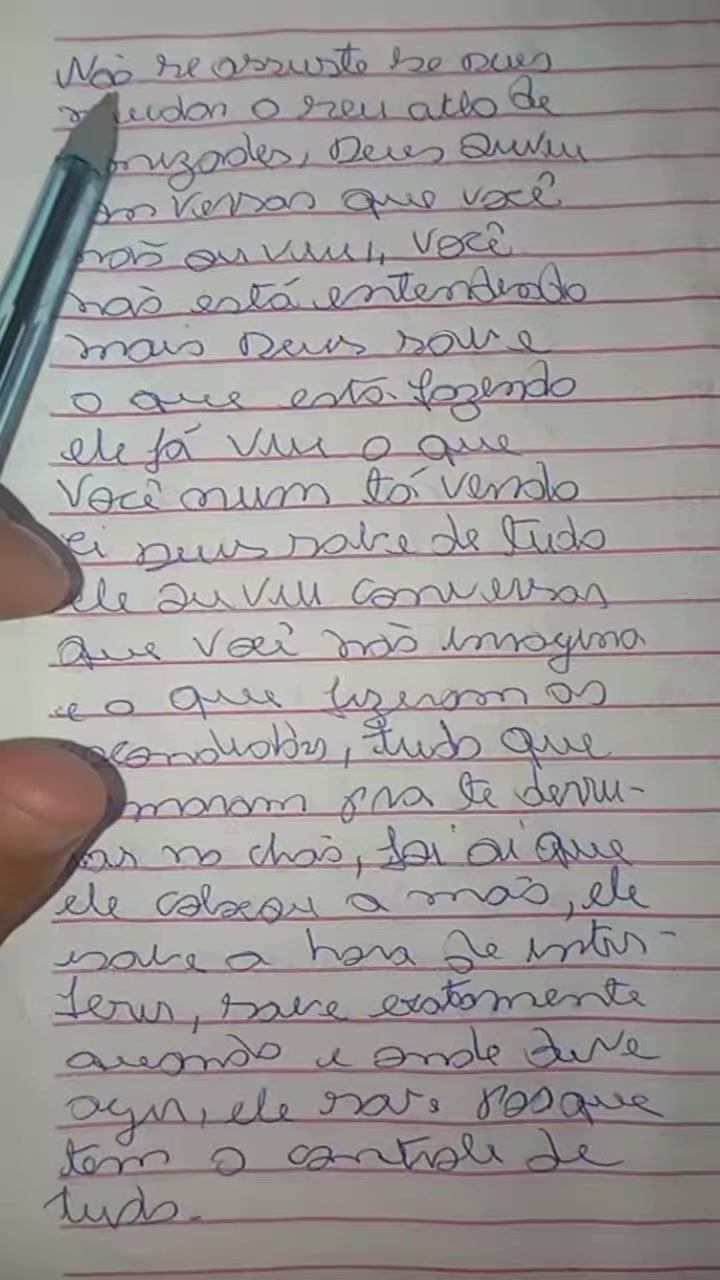 Não se assuste se Deus
mudar o seu ciclo de
amizades, Deus ouviu
conversas que você
não ouviu, você
não está entendendo
mais Deus sabe
o que está fazendo
ele já viu o que
Você num tá vendo
ei Deus sabe de tudo
ele ouviu conversas
que você não imagina
e o que fizeram as
escondidas, tudo que
armaram pra te derru-
bar no chão, foi aí que
ele colocou a mão, ele
sabe a hora de inter-
ferir, sabe exatamente
quando e onde deve
agir, ele sabe porque
tem o controle de
tudo.